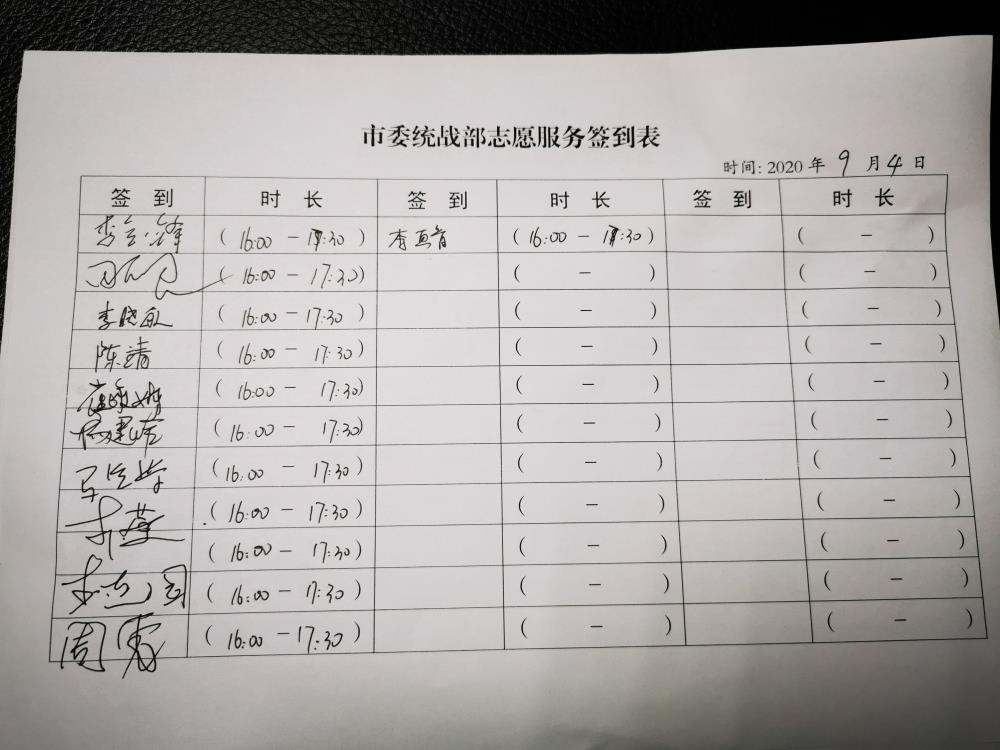 市委统战部志愿服务签到表
时间: 2020 年 9 月 4 日
签 到 时 长 签 到 时 长 签 到 时 长
(16:00 - 17:30) (16:00 - 17:30) ( - )
(16:00 - 17:30) ( - ) ( - )
李晓敏 (16:00 - 17:30) ( - ) ( - )
陈靖 (16:00 - 17:30) ( - ) ( - )
(16:00 - 17:30) ( - ) ( - )
(16:00 - 17:30) ( - ) ( - )
(16:00 - 17:30) ( - ) ( - )
(16:00 - 17:30) ( - ) ( - )
(16:00 - 17:30) ( - ) ( - )
(16:00 - 17:30) ( - ) ( - )
周 (16:00 - 17:30) ( - ) ( - )